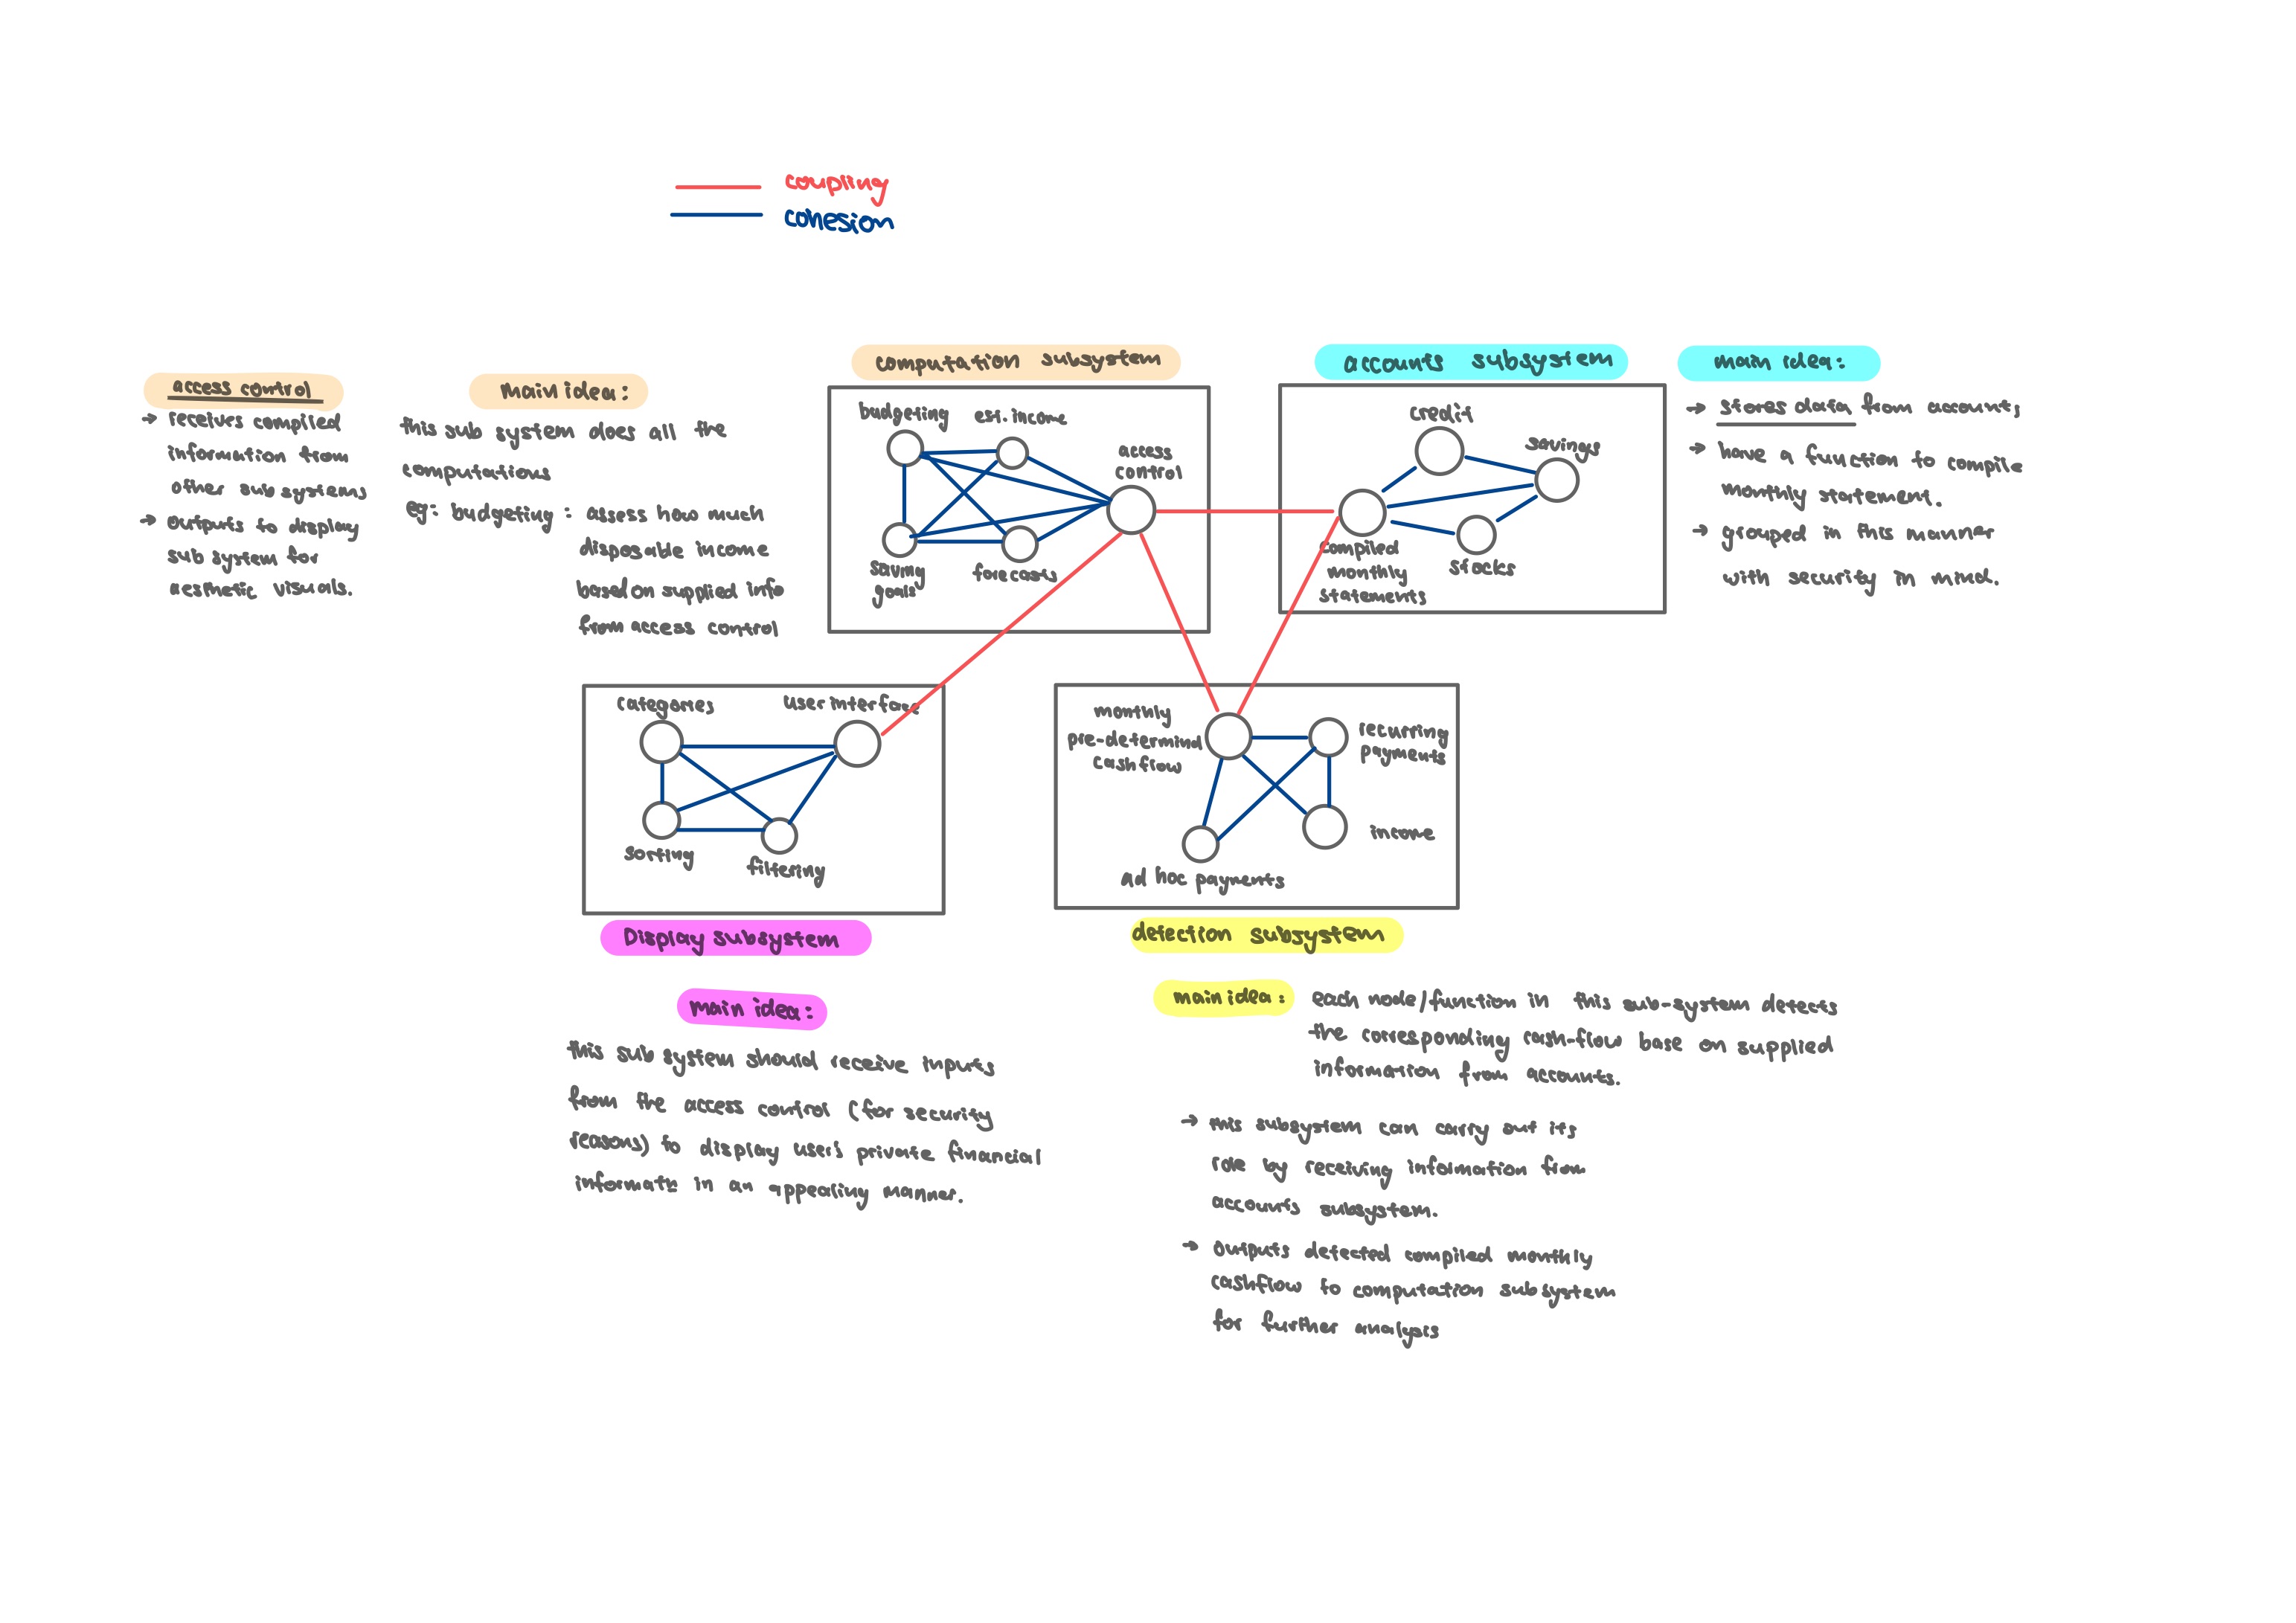 coupling
cohesion
access control
→ receives compiled
information from
other sub systems
→ outputs to display
sub system for
aesthetic visuals.
main idea:
this sub system does all the
computations
eg: budgeting: assess how much
disposable income
based on supplied info
from access control
computation subsystem
budgeting
est. income
access
control
saving
goals
forecasts
accounts subsystem
credit
savings
compiled
monthly
statements
stocks
main idea:
→ stores data from accounts
→ have a function to compile
monthly statement.
→ grouped in this manner
with security in mind.
categories
user interface
sorting
filtering
Display subsystem
main idea:
this sub system should receive inputs
from the access control (for security
reasons) to display user's private financial
informatn in an appealing manner.
monthly
pre-determind
cashflow
recurring
payments
income
ad hoc payments
detection subsystem
main idea: each node/function in this sub-system detects
the corresponding cash-flow base on supplied
information from accounts.
→ this subsystem can carry out its
role by receiving information from
accounts subsystem.
→ outputs detected compiled monthly
cashflow to computation subsystem
for further analysis